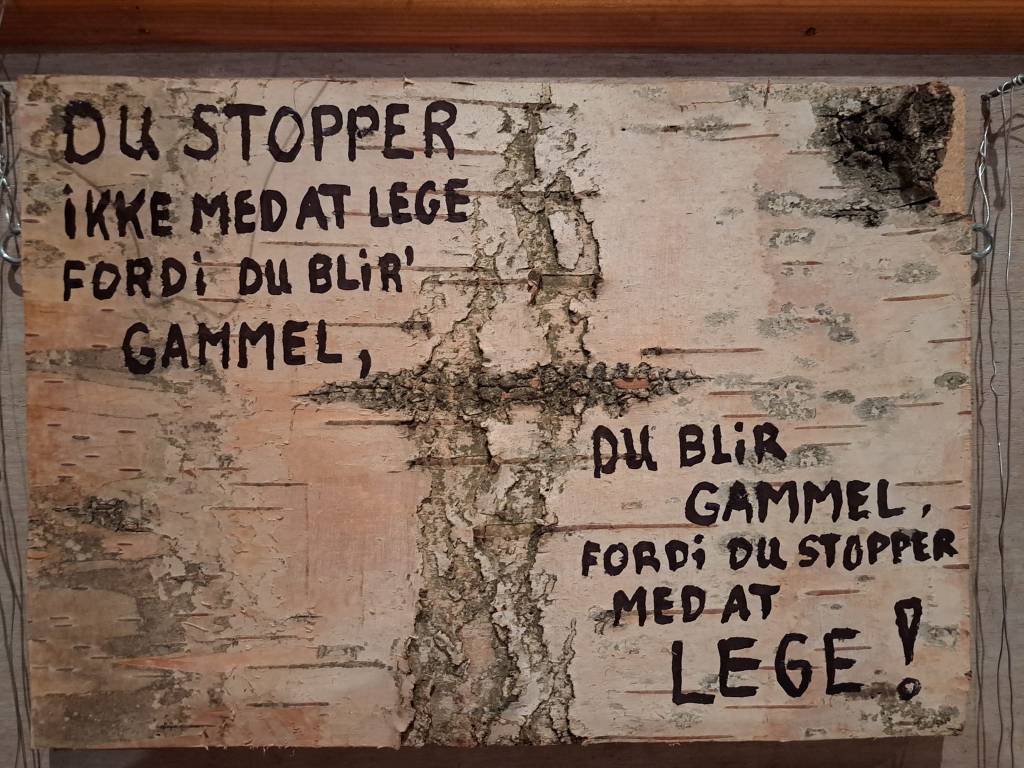 DU STOPPER
iKKE MED AT LEGE
FORDi DU BLiR'
GAMMEL,
DU BLiR
GAMMEL,
FORDi DU STOPPER
MED AT
LEGE!